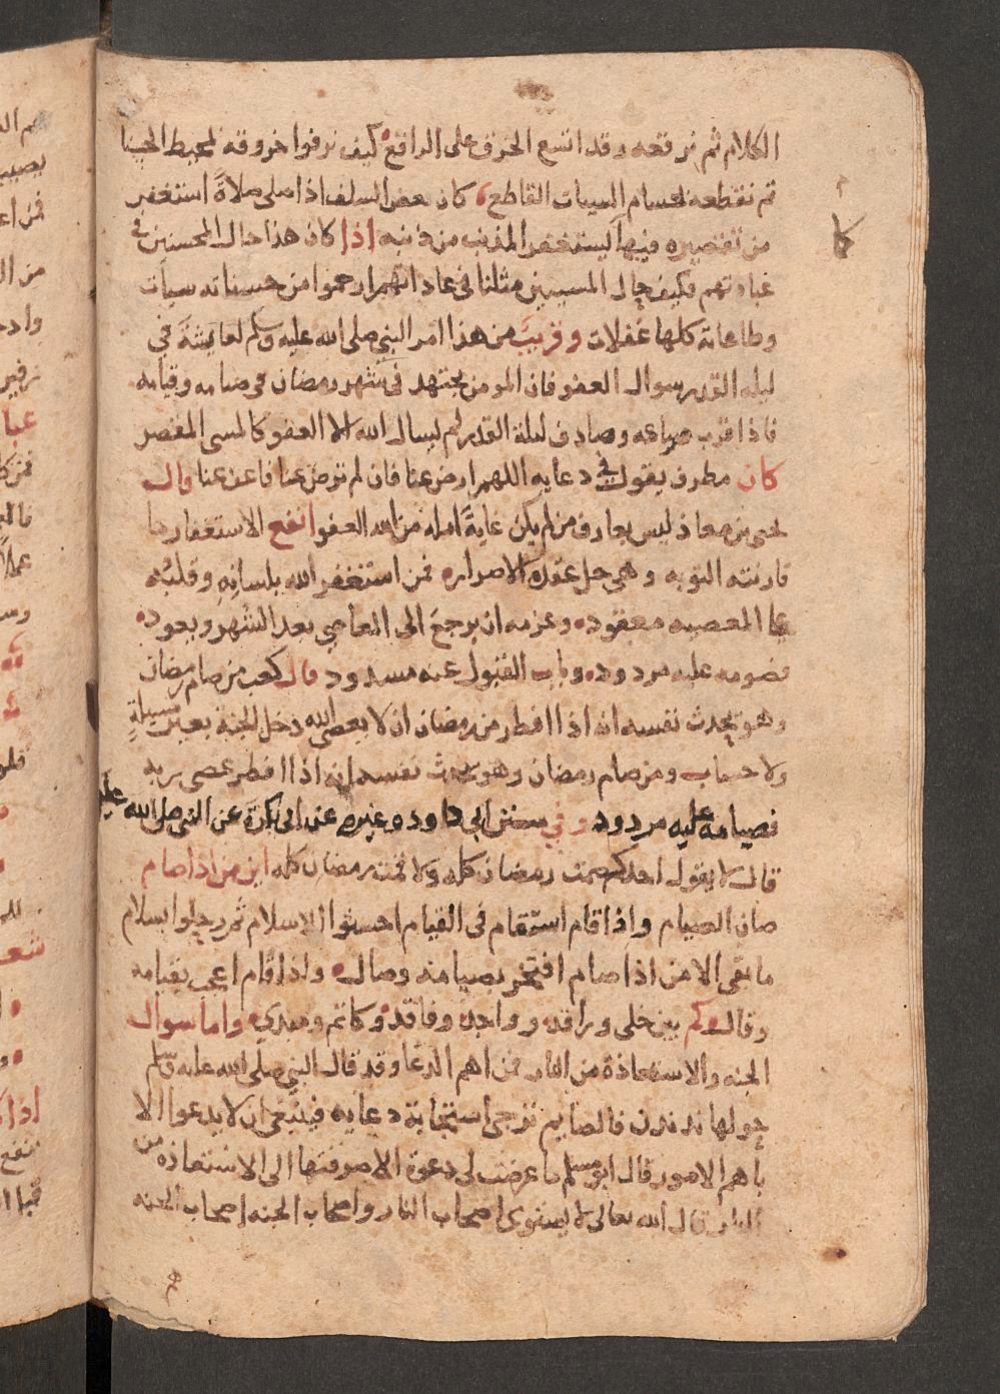 الكلام ثم نرقعه وقد اتسع الخرق على الراقع كيف نرفوا خروقه لمخيط الحسنا
ثم نقطعه لحسام السيات القاطع كان بعض السلف اذا صلى صلاةً استغفر
من تقصيره فيها كما يستغفر المذنب من ذنبه اذا كان هذا حال المحسنين في
عباداتهم فكيف حال المسيين مثلنا في عاداتهم ارحموا من حسناته سيات
وطاعاته كلها غفلات وقريب من هذا امر النبي صلى الله عليه وسلم لعايشة في
ليله القدر بسوال العفو فان المومن يجتهد في شهر رمضان في صيامه وقيامه
فاذا قرب فراغه وصادف ليلة القدر لم يسال الله الا العفو كالمسي المقصر
كان مطرف يقول في دعايه اللهم ارض عنا فان لم ترض عنا فاعف عنا وقال
يحيى بن معاذ ليس بعارف من لم يكن غاية امله من الله العفو انفع الاستغفار ما
قارنته التوبه وهي حل عقده الاصراره فمن استغفر الله بلسانه وقلبه
على المعصيه معقوده وعزمه ان يرجع الى المعاصي بعد الشهر ويعوده
فصومه عليه مردوده وباب القبول عنه مسدود قال كعب من صام رمضان
وهو يحدث نفسه انه اذا افطر من رمضان ان لا يعصي الله دخل الجنة بغير مسيلةٍ
ولا حساب ومن صام رمضان وهو يحدث نفسه انه اذا افطر عصى ربه
فصيامه عليه مردود وفي سنن ابي داوده وغيره عن ابي بكرة عن النبي صلى الله عليه
قال لا يقول احدكم صمت رمضان كله ولا قمت رمضان كله اين من اذا صام
صان الصيام واذا قام استقام في القيام احسنوا الاسلام ثم رحلوا بسلام
ما بقي الا من اذا صام افتخر بصيامه وصال واذا قام اعجب بقيامه
وقال كم بين خلي وراقد وواجد وفاقد وكاتم ومبدي واما سوال
الجنه والاستعاذة من النار فمن اهم الدعا وقد قال النبي صلى الله عليه وسلم
حولها ندندن فالصايم ترجى استجابة دعايه فينبغي ان لا يدعوا الا
باهم الامور قال ابو مسلم ما عرضت لي دعوة الا صرفتها الى الاستعاذه من
النار قال الله تعالى لا يستوي اصحاب النار واصحاب الجنه اصحاب الجنه